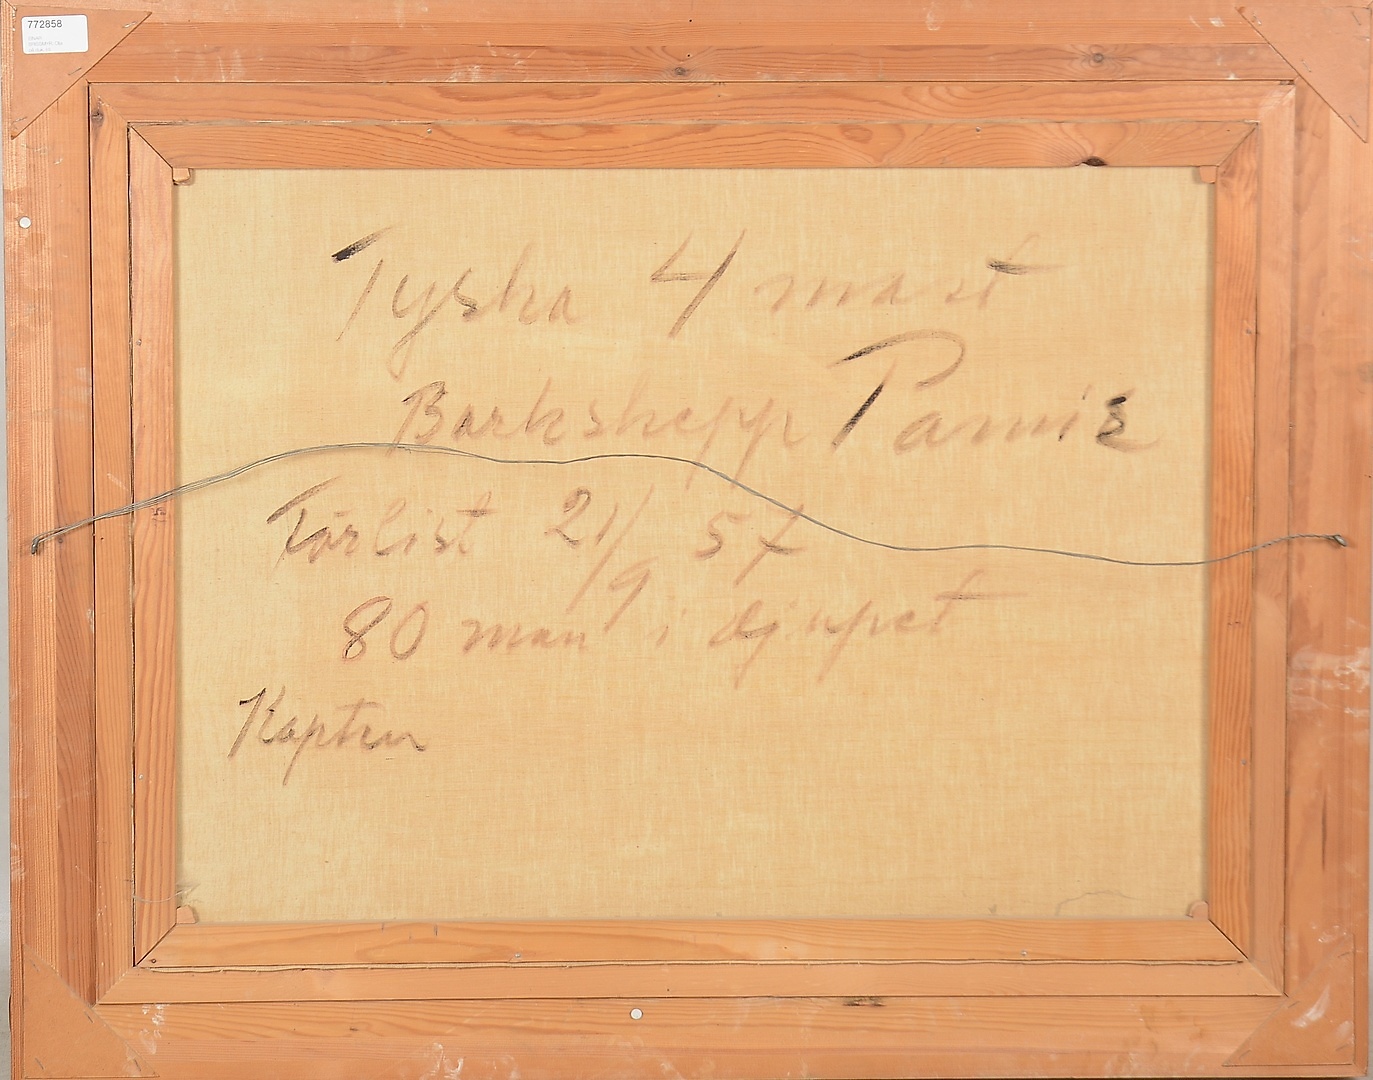 772858
Tyska 4 mast
Barkskepp Pamis
Förlist 21/9 57
80 man i djupet
Kapten